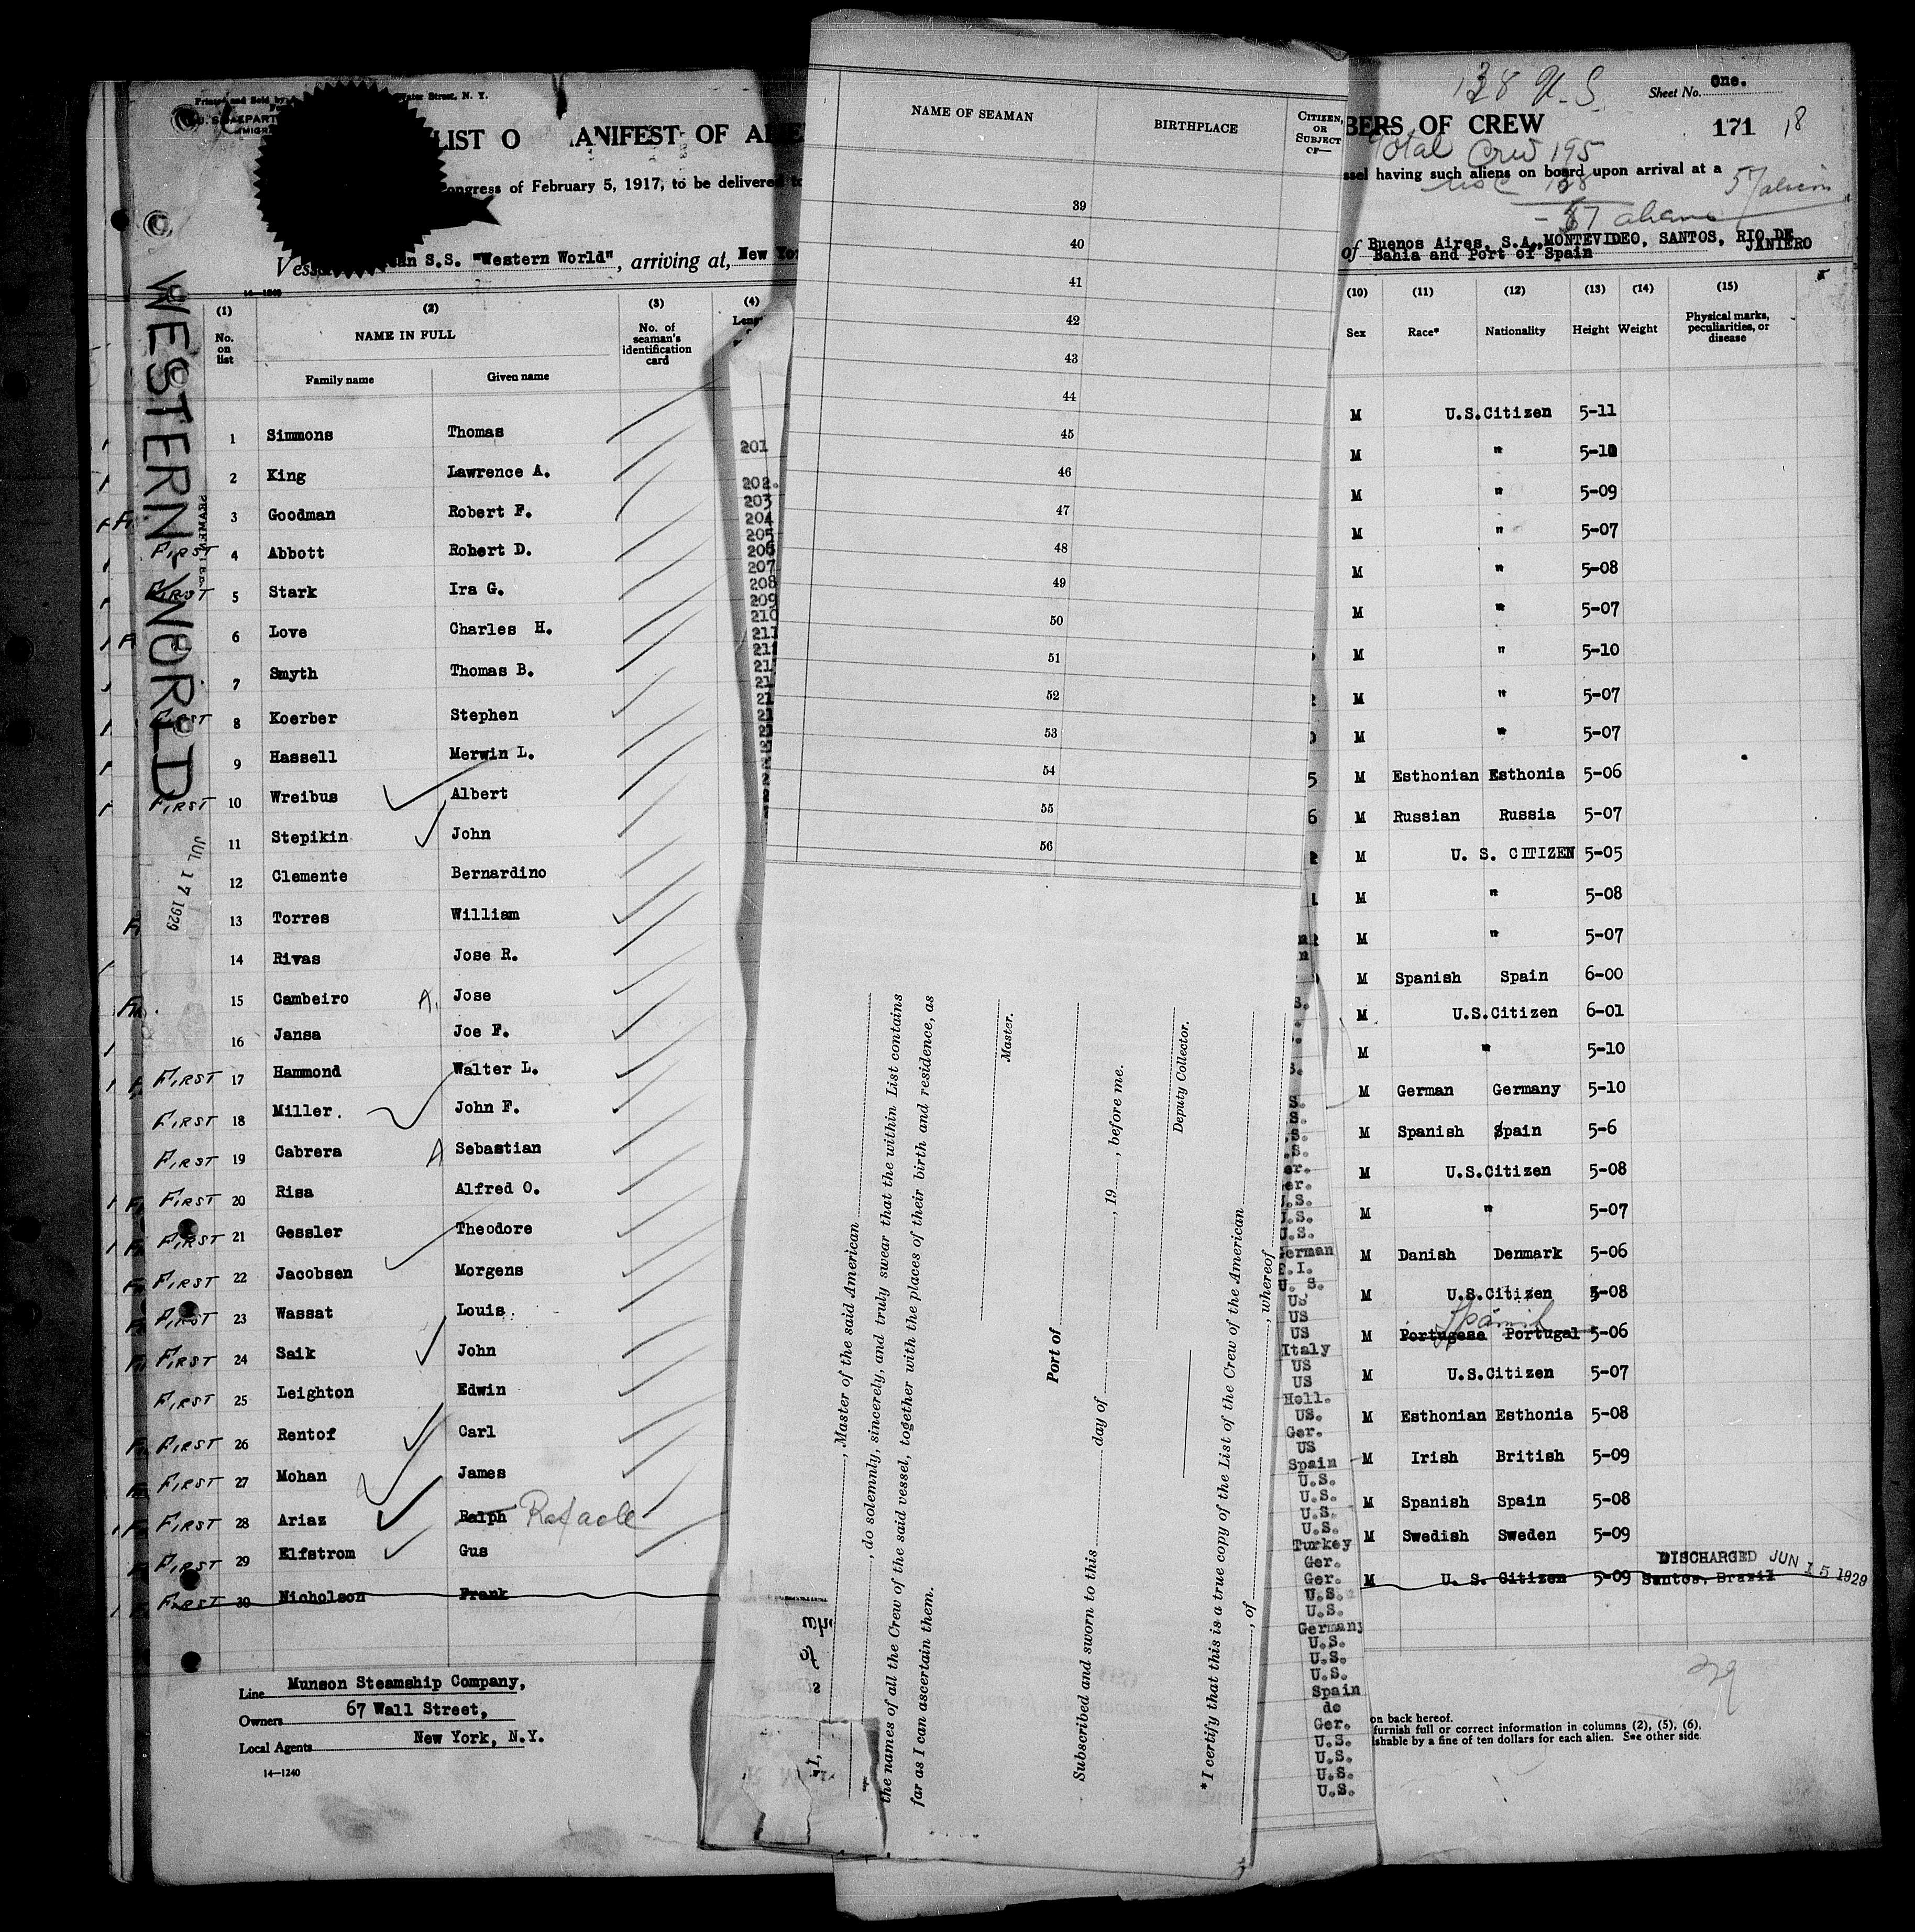 Sheet No. One.
138 U.S.
LIST O
ANIFEST OF
BERS OF CREW
171
18
Total Crew 195
ongress of February 5, 1917, to be delivered
ssel having such aliens on board upon arrival at a
57 aliens
Vess
S.S. "Western World", arriving at, New Yo
of Buenos Aires, S.A., MONTEVIDEO, SANTOS, RIO DE JANIERO
Bahia and Port of Spain
14-1240
WESTERN WORLD
JUL 17 1929
(1) (2) (3) (4)
No. on list
NAME IN FULL
No. of seaman's identification card
Family name Given name
1 Simmons Thomas
2 King Lawrence A.
3 Goodman Robert F.
FIRST 4 Abbott Robert D.
FIRST 5 Stark Ira G.
6 Love Charles H.
7 Smyth Thomas B.
FIRST 8 Koerber Stephen
9 Hassell Merwin L.
FIRST 10 Wreibus Albert
11 Stepikin John
12 Clemente Bernardino
13 Torres William
14 Rivas Jose R.
15 Cambeiro A. Jose
16 Jansa Joe F.
FIRST 17 Hammond Walter L.
FIRST 18 Miller. John F.
FIRST 19 Cabrera A Sebastian
FIRST 20 Risa Alfred O.
FIRST 21 Gessler Theodore
FIRST 22 Jacobsen Morgens
FIRST 23 Wassat Louis
FIRST 24 Saik John
FIRST 25 Leighton Edwin
FIRST 26 Rentof Carl
FIRST 27 Mohan James
FIRST 28 Ariaz Ralph Rafaele
FIRST 29 Elfstrom Gus
FIRST 30 Nicholson Frank
Line Munson Steamship Company,
Owners 67 Wall Street,
Local Agents New York, N.Y.
14-1240
201
202.
203
204
205
206
207
208
209
210
211
NAME OF SEAMAN BIRTHPLACE CITIZEN, OR SUBJECT OF—
39
40
41
42
43
44
45
46
47
48
49
50
51
52
53
54
55
56
I,
, Master of the said American
, do solemnly, sincerely, and truly swear that the within List contains
the names of all the Crew of the said vessel, together with the places of their birth and residence, as
far as I can ascertain them.
Master.
Port of
Subscribed and sworn to this day of , 19 , before me.
Deputy Collector.
*I certify that this is a true copy of the List of the Crew of the American
, of , whereof
S.
S.
S.
S.
er.
er.
U.S.
U.S.
U.S.
German
E.I.
U. S.
US
US
US
Italy
US
US
Holl.
US.
Ger.
US
Spain
U.S.
U.S.
U.S.
U.S.
Turkey
Ger.
Ger.
U.S.
U.S.
Germany
U.S.
U.S.
U.S.
Spain
de
Ger.
U.S.
U.S.
U.S.
U.S.
(10) (11) (12) (13) (14) (15)
Sex Race* Nationality Height Weight Physical marks, peculiarities, or disease
M U.S.Citizen 5-11
M " 5-10
M " 5-09
M " 5-07
M " 5-08
M " 5-07
M " 5-10
M " 5-07
M " 5-07
M Esthonian Esthonia 5-06
M Russian Russia 5-07
M U. S. CITIZEN 5-05
M " 5-08
M " 5-07
M Spanish Spain 6-00
M U.S.Citizen 6-01
M " 5-10
M German Germany 5-10
M Spanish Spain 5-6
M U.S.Citizen 5-08
M " 5-07
M Danish Denmark 5-06
M U.S.Citizen 5-08
Spanish
M Portugese Portugal 5-06
M U.S.Citizen 5-07
M Esthonian Esthonia 5-08
M Irish British 5-09
M Spanish Spain 5-08
M Swedish Sweden 5-09
DISCHARGED JUN 15 1929
M U. S. Citizen 5-09 Santos, Brazil
29
on back hereof.
furnish full or correct information in columns (2), (5), (6),
ishable by a fine of ten dollars for each alien. See other side.